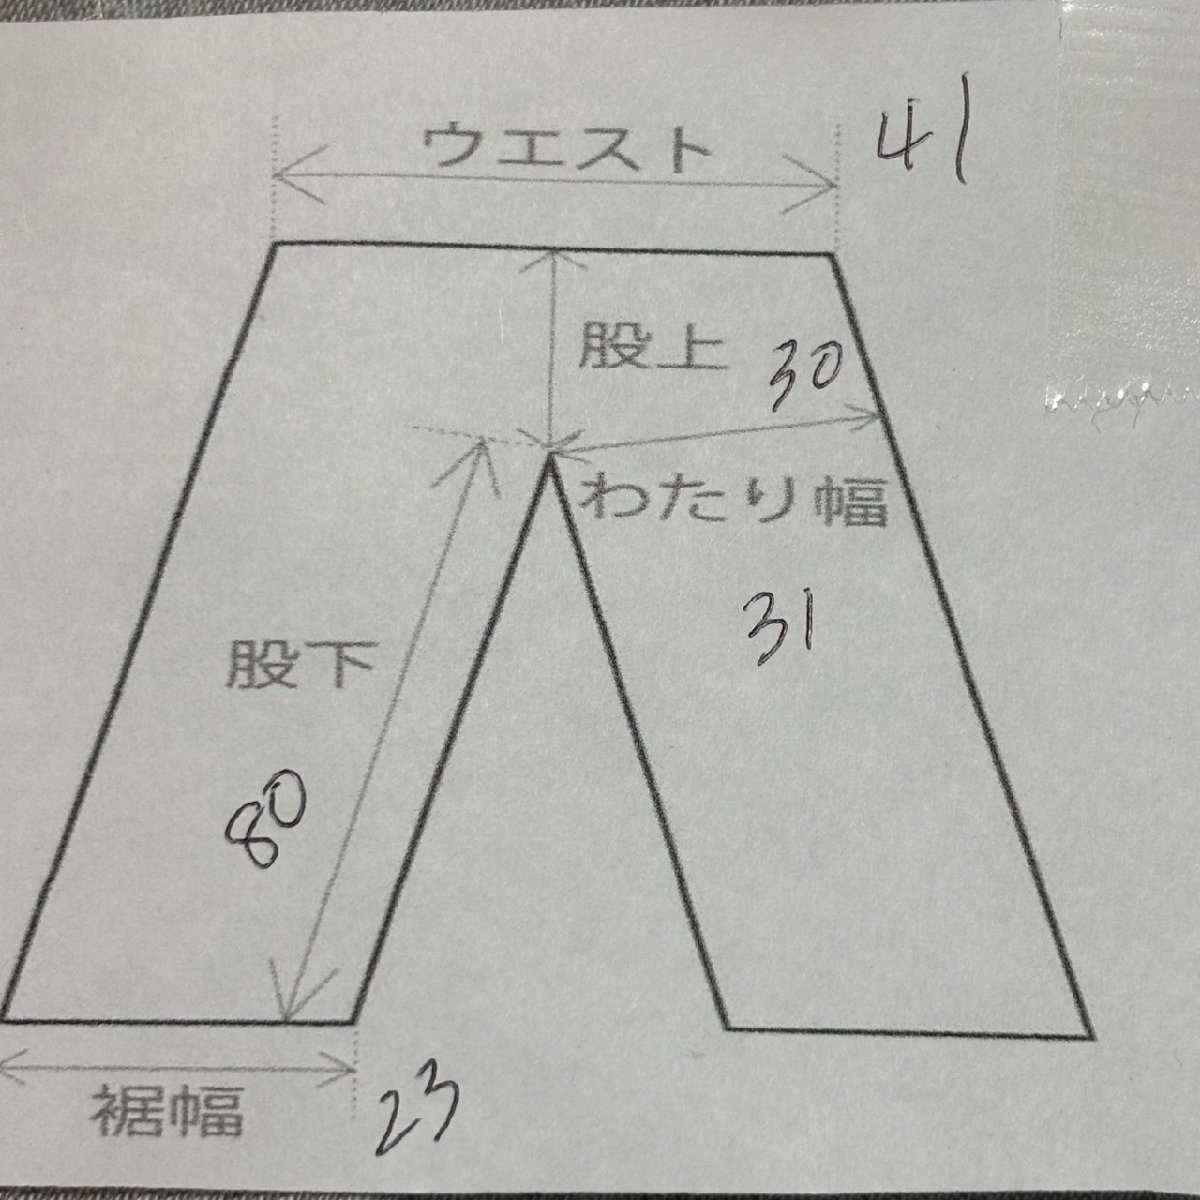 ウエスト 41
股上 30
わたり幅
31
股下
80
裾幅 23